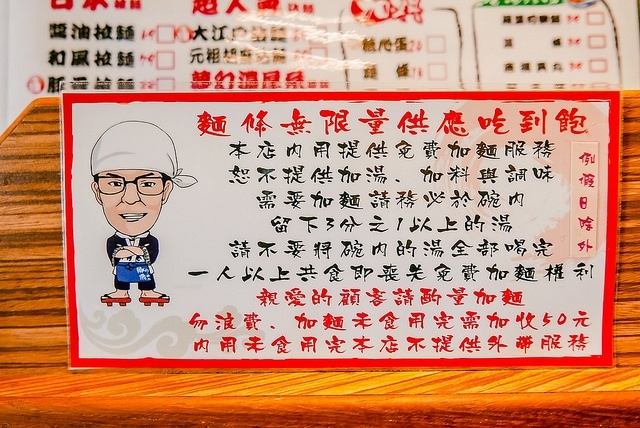 醬油拉麵
和風拉麵
大江戶拉麵
元祖胡麻拉麵
溏心蛋
麵條
麵條無限量供應吃到飽
本店內用提供免費加麵服務
恕不提供加湯、加料與調味
需要加麵請務必於碗內
留下3分之1以上的湯
請不要將碗內的湯全部喝完
一人以上共食即喪失免費加麵權利
親愛的顧客請酌量加麵
勿浪費、加麵未食用完需加收50元
內用未食用完本店不提供外帶服務
例假日除外